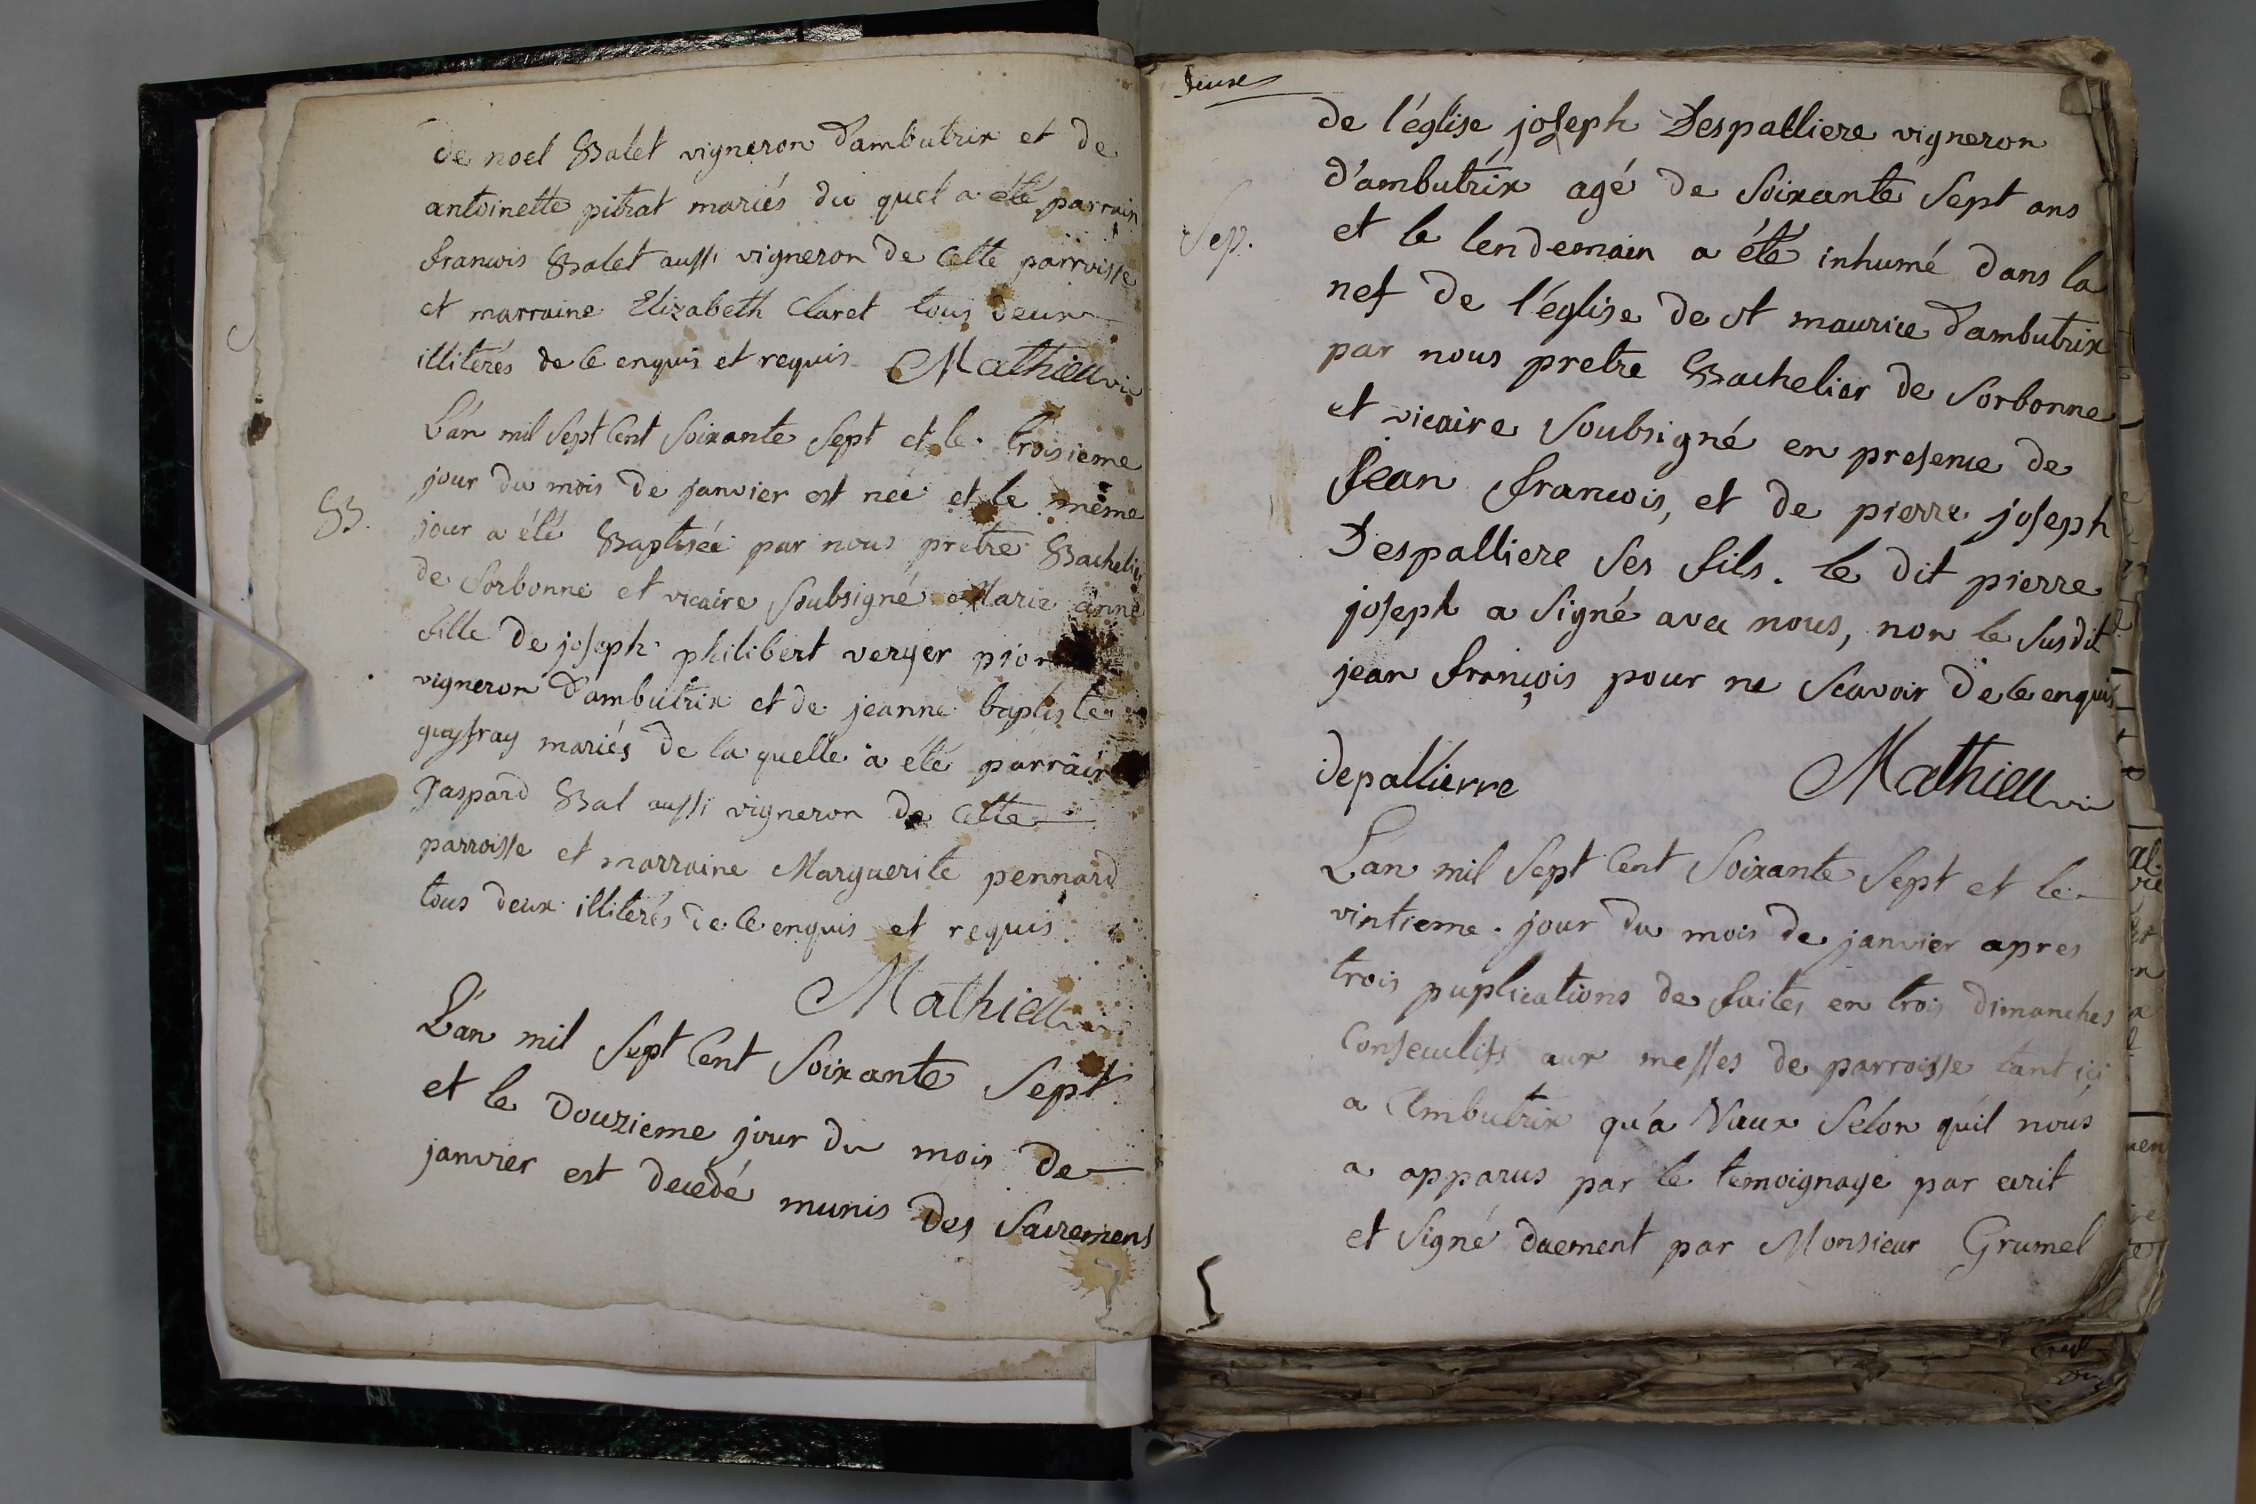 de noel Balet vigneron d'ambutrix et de
antoinette pitrat mariés du quel a été parrain
francois Balet aussi vigneron de cette parroisse
et marraine Elizabeth Claret tous deux
illiterés de ce enquis et requis Mathieu vic
L'an mil sept cent soixante sept et le troisieme
jour du mois de janvier est née et le même
B.
jour a été Baptisée par nous pretre Bachelier
de Sorbonne et vicaire soubsigné Marie anne
fille de joseph philibert verger
vigneron d'ambutrix et de jeanne baptiste
guyfray mariés de la quelle a été parrain
gaspard Bal aussi vigneron de cette
parroisse et marraine Marguerite pennard
tous deux illiterés de ce enquis et requis
Mathieu
L'an mil sept cent soixante sept
et le douzieme jour du mois de
janvier est decedé munis des sacremens
deuxe
de l'église joseph Despalliere vigneron
d'ambutrix agé de soixante sept ans
Sep.
et le lendemain a été inhumé dans la
nef de l'église de st maurice d'ambutrix
par nous pretre Bachelier de Sorbonne
et vicaire soubsigné en presence de
jean francois, et de pierre joseph
Despalliere ses fils. le dit pierre
joseph a signé avec nous, non le susdit
jean françois pour ne scavoir de ce enquis
depallierre Mathieu vic
L'an mil sept cent soixante sept et le
vintieme jour du mois de janvier apres
trois puplications de faites en trois dimanches
consecutifs aux messes de parroisse tant ici
a Ambutrix qu'a Vaux selon qu'il nous
a apparus par le temoignage par ecrit
et signé duement par Monsieur Grumel